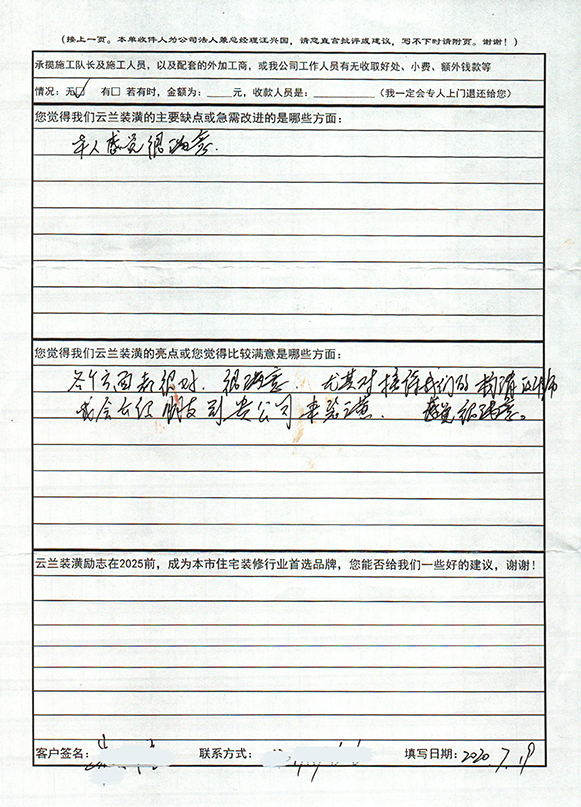 (接上一页。本单收件人为公司法人兼总经理汪兴国，请您直言批评或建议，写不下时请附页。谢谢！)
承揽施工队长及施工人员，以及配套的外加工商，或我公司工作人员有无收取好处、小费、额外钱款等
情况：无☑ 有□ 若有时，金额为：____元，收款人是：__________（我一定会专人上门退还给您）
您觉得我们云兰装潢的主要缺点或急需改进的是哪些方面：
本人感觉很满意.
您觉得我们云兰装潢的亮点或您觉得比较满意是哪些方面：
各个方面都很好. 很满意. 尤其对接待我们的 设计师
我会介绍 朋友到贵公司来 感觉很满意。
云兰装潢励志在2025前，成为本市住宅装修行业首选品牌，您能否给我们一些好的建议，谢谢！
客户签名： 联系方式： 填写日期：2020.7.19